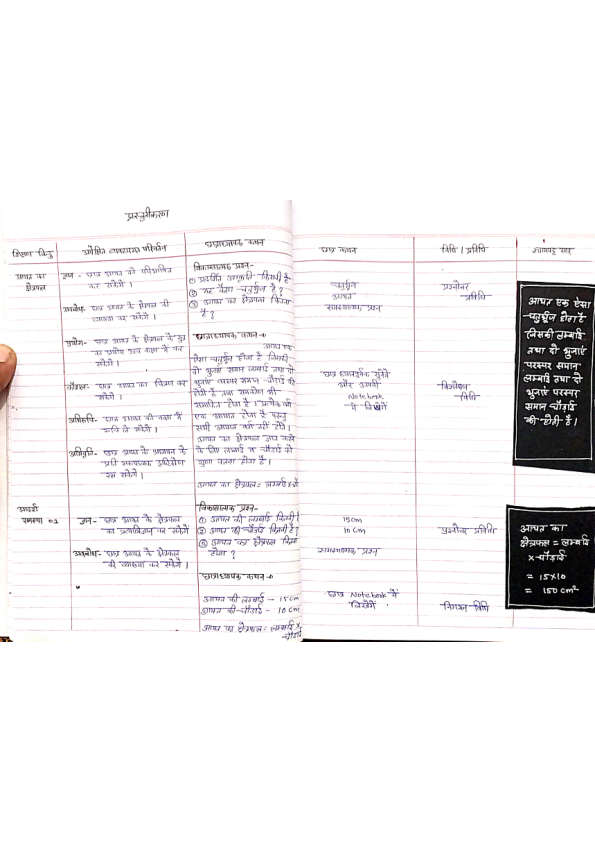 प्रस्तुतीकरण
शिक्षण बिन्दु
अपेक्षित व्यवहारगत परिवर्तन
छात्राध्यापक कथन
छात्र कथन
विधि / प्रविधि
श्यामपट्ट सार
आयत का
क्षेत्रफल
ज्ञान - छात्र आयत को परिभाषित
कर सकेंगे ।
अवबोध - छात्र आयत के क्षेत्रफल की
व्याख्या कर सकेंगे ।
प्रयोग - छात्र आयत के क्षेत्रफल के सूत्र
का प्रयोग अन्य कक्षा में कर
सकेंगे ।
कौशल - छात्र आयत का चित्रण कर
सकेंगे ।
अभिरूचि - छात्र आयत की कक्षा में
रूचि ले सकेंगे ।
अभिवृत्ति - छात्र आयत के अध्ययन के
प्रति सकारात्मक दृष्टिकोण
रख सकेंगे ।
विकासात्मक प्रश्न -
① प्रदर्शित आकृति कितनी है
② यह कैसा चतुर्भुज है ?
③ आयत का क्षेत्रफल कितना
है ?
छात्राध्यापक कथन -
आयत एक
ऐसा चतुर्भुज होता है जिसकी
दो भुजाएं समान लम्बाई तथा दो
भुजाएं परस्पर समान चौड़ाई की
होती है तथा समकोण भी
समाहित होता है । प्रत्येक वर्ग
एक आयत होता है परन्तु
सभी आयत वर्ग नहीं होते ।
आयत का क्षेत्रफल ज्ञात करने
के लिए लम्बाई व चौड़ाई को
गुणा करना होता है ।
आयत का क्षेत्रफल = लम्बाई x चौ
चतुर्भुज
आयत
समस्यात्मक प्रश्न
छात्र ध्यानपूर्वक सुनेंगे
और अपनी
Notebook
में लिखेंगे
प्रश्नोत्तर
प्रविधि
विधि
आयत एक ऐसा
चतुर्भुज होता है
जिसकी लम्बाई
तथा दो भुजाएं
परस्पर समान
लम्बाई तथा दो
भुजाएं परस्पर
समान चौड़ाई
की होती है ।
आदर्श
समस्या 01
ज्ञान - छात्र आयत के क्षेत्रफल
का प्रत्याभिज्ञान कर सकेंगे
अवबोध - छात्र आयत के क्षेत्रफल
की व्याख्या कर सकेंगे ।
विकासात्मक प्रश्न -
① आयत की लम्बाई कितनी है
② आयत की चौड़ाई कितनी है ?
③ आयत का क्षेत्रफल कितना
होगा ?
छात्राध्यापक कथन -
आयत की लम्बाई - 15 cm
आयत की चौड़ाई - 10 cm
आयत का क्षेत्रफल = लम्बाई x
चौड़ाई
15cm
10 Cm
समस्यात्मक प्रश्न
छात्र Notebook में
लिखेंगे
प्रश्नोत्तर प्रविधि
निगमन विधि
आयत का
क्षेत्रफल = लम्बाई
x चौड़ाई
= 15x10
= 150 cm²